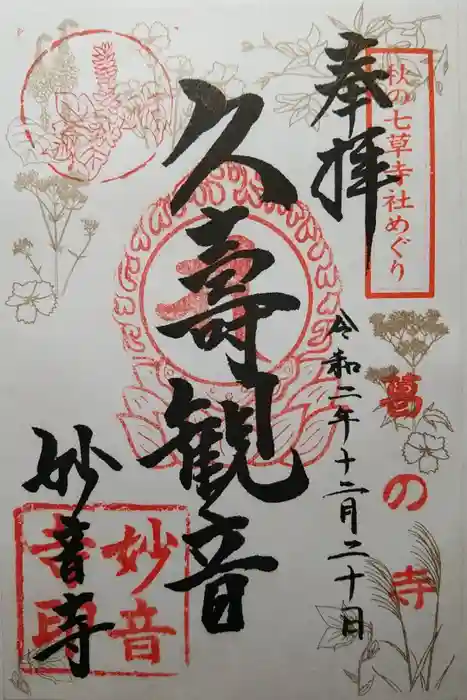 秋の七草寺社めぐり
奉拝
令和二年十二月二十日
葛の寺
久壽観音
妙音寺
妙音寺印